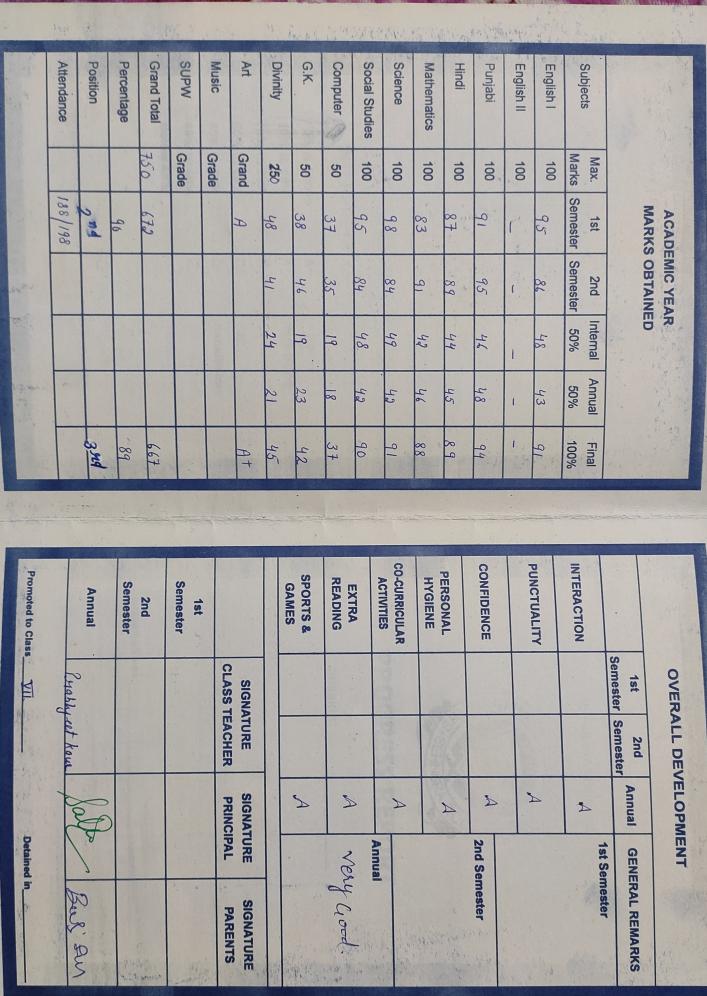 ACADEMIC YEAR
MARKS OBTAINED
Subjects Max. Marks 1st Semester 2nd Semester Internal 50% Annual 50% Final 100%
English I 100 95 86 48 43 91
English II 100 - - - - -
Punjabi 100 91 95 46 48 94
Hindi 100 87 89 44 45 89
Mathematics 100 83 91 42 46 88
Science 100 98 84 49 42 91
Social Studies 100 95 84 48 42 90
Computer 50 37 35 19 18 37
G.K. 50 38 46 19 23 42
Divinity 250 48 41 24 21 45
Art Grand A A+
Music Grade
SUPW Grade
Grand Total 750 672 667
Percentage 96 89
Position 2nd 3rd
Attendance 188/198
OVERALL DEVELOPMENT
1st Semester 2nd Semester Annual GENERAL REMARKS
INTERACTION A 1st Semester
PUNCTUALITY A
CONFIDENCE A 2nd Semester
PERSONAL HYGIENE A
CO-CURRICULAR ACTIVITIES A Annual
EXTRA READING A Very Good.
SPORTS & GAMES A
SIGNATURE CLASS TEACHER SIGNATURE PRINCIPAL SIGNATURE PARENTS
1st Semester
2nd Semester
Annual
Promoted to Class VII Detained in